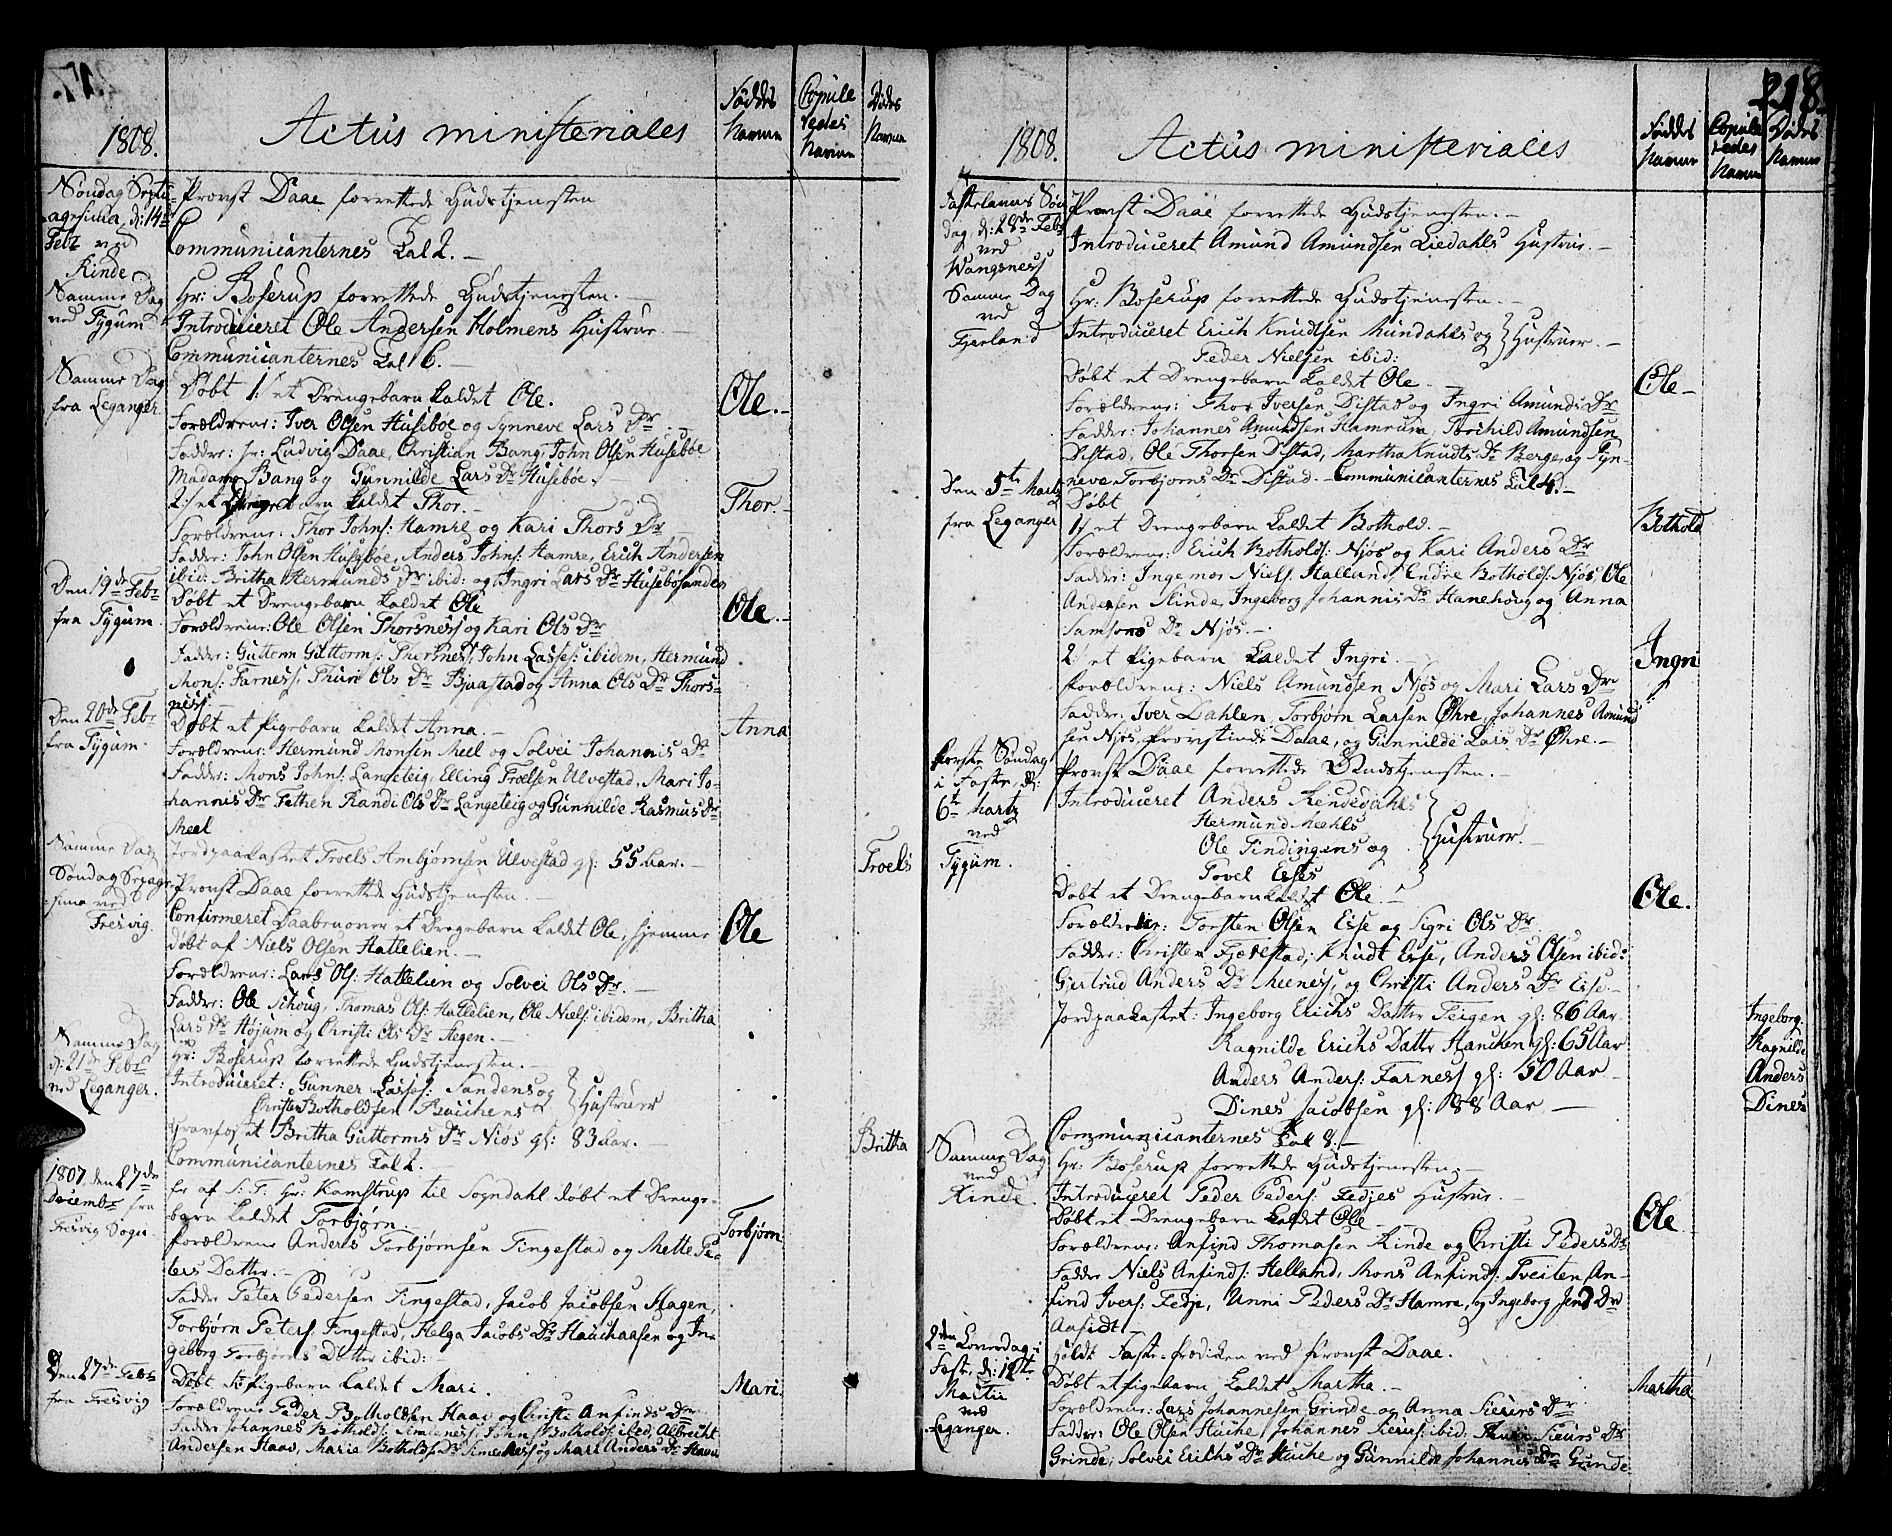 1808.
Actus ministeriales
Føddes Navne
Copuleredes Navne
Dødes Navne
Søndag Septuagesima, d: 14de Febr ved Rinde
Provst Daae forrettede Gudstjenesten
Communicanternes Tal 2. –
Samme Dag ved Tygum
Hr: Boserup forrettede Gudstjenesten. –
Introduceret Ole Andersen Holmens Hustrue. –
Communicanternes Tal 16. –
Samme Dag fra Leganger.
Døbt 1/ et Drengebarn kaldet Ole.
Ole. –
Forældrene: Iver Olsen Husebøe og Synneve Lars Dr. –
Fadder: Hr: Ludvig Daae, Christian Bang, John Olsen Husebøe
Madame Bang og Gunnilde Lars Dr Husebøe.
2/ et Drengebarn kaldet Thor. –
Thor. –
Forældrene: Thor Johns: Hamre og Kari Thors Dr
Fadder: John Olsen Husebøe, Anders Johns: Hamre, Erich Andersen
ibid: Britha Hermunds Dr ibid: og Ingri Lars Dr Husebøsanden
Den 19de Febr fra Tygum.
Døbt et Drengebarn kaldet Ole
Ole. –
Forældrene: Ole Olsen Thorsness og Kari Ols Dr
Fadder: Guttorm Guttorms: Thorsness, John Lasses: ibidem, Hermund
Mons: Farness, Thuri Ols Dr Bjaastad og Anna Ols Dr Thorsness. –
Den 20de Febr fra Tygum.
Døbt et Pigebarn kaldet Anna. –
Anna
Forældrene: Hermund Monsen Meel og Solvei Johannis Dr
Fadder: Mons Johns: Langeteig, Elling Troelsen Ulvestad, Mari Jo-
hannis Dr Fethen Randi Ols Dr Langeteig og Gunnilde Rasmus Dr
Meel
Samme Dag
Jordpaakastet Troels Ambjørnsen Ulvestad gl: 55 Aar. –
Troels
Søndag Sexagesima ved Fresvig.
Provst Daae forrettede Gudstjenesten. –
Confirmeret Daaben over et Drengebarn kaldet Ole, hjemme
Ole
døbt af Niels Olsen Hattelien. –
Forældrene: Lars Ols: Hattelien og Solvei Ols Dr. –
Fadder: Ole Schoug, Thomas Ols: Hattelien, Ole Niels: ibidem, Britha
Lars Dr Højum og Christi Ols Dr Stegen. –
Samme Dag d: 21de Febr ved Leganger.
Hr: Boserup forrettede Gudstjenesten. –
Introduceret: Gunner Lasses: Sandens og
Christen Botholdsen Bauchens
Hustruer
Gravfæstet Britha Guttorms Dr Niøs gl: 83 Aar. –
Britha
Communicanternes Tal 2. –
1807, den 27de Decembr fra Fresvig Sogn.
Er af S: T: Hr: Kamstrup til Sogndahl døbt et Drenge-
barn kaldet Torbjørn. –
Torbjørn
Forældrene Anders Torbjørnsen Tingestad og Mette Pe-
ters Datter. –
Fadder Peter Pedersen Tingestad, Jacob Jacobsen Hagen,
Torbjørn Peters: Tingestad, Helga Jacobs Dr Hauchaasen og In-
geborg Torbjørns Datter ibid: –
Den 27de Febr fra Fresvig
Døbt et Pigebarn kaldet Mari.
Mari
Forældrene Peder Botholdsen Haav og Christi Anfinds Dr
Fadder Johannes Bothold: Simeness, John Botholds: ibid, Albrecht
Andersen Haav, Marie Botholds Dr Simeness og Mari Anders Dr Haav
218.
1808.
Actus ministeriales
Føddes Navne
Copuleredes Navne
Dødes Navne
Fastelavns Søndag, d: 28de Febr ved Wangsness
Provst Daae forrettede Gudstjenesten. –
Introduceret Amund Amundsen Liedahls Hustrue. –
Samme Dag ved Fjerland
Hr: Boserup forrettede Gudstjenesten. –
Introduceret Erich Knudtsen Mundahls og
Peder Nielsen ibid:
Hustruer. –
Døbt et Drengebarn kaldet Ole –
Ole –
Forældrene: Thor Iversen Distad og Ingri Amunds Dr
Fadder: Johannes Amundsen Hamrum, Torchild Amundsen
Distad, Ole Thorsen Distad, Martha Knudts Dr Berge og Syn-
neve Torbjørns Dr Distad. – Communicanternes Tal 4. –
Den 5te Martz fra Leganger
Døbt
1/ et Drengebarn kaldet Bothold. –
Bothold
Forældrene: Erich Botholds: Njøs og Kari Anders Dr
Fadder: Ingemor Niels: Halland, Endre Botholds: Njøs, Ole
Andersen Rinde, Ingeborg Johannis Dr Hanehoug og Anna
Samsons Dr Njøs. –
2/ et Pigebarn kaldet Ingri. –
Ingri
Forældrene: Niels Amundsen Njøs og Mari Lars Dr
Fadder: Iver Dahlen, Torbjørn Larsen Øhre, Johannes Amund
sen Njøs, Provstinde Daae, og Gunnilde Lars Dr Øhre. –
Første Søndag i Faste, d: 6te Martz ved Tygum.
Provst Daae forrettede Gudstjenesten. –
Introduceret Anders Rendedahls
Hermund Meels
Ole Tindingens og
Povel Eises
Hustruer. –
Døbt et Drengebarn kaldet Ole. –
Ole.
Forældrene: Torsten Olsen Eise og Sigri Ols Dr
Fadder: Christen Fjærestad, Knudt Eise, Anders Olsen ibid:
Gjertrud Anders Dr Meenes, og Christi Anders Dr Eise –
Jordpaakastet: Ingeborg Erichs Datter Teigen gl: 86 Aar.
Ingeborg.
Ragnilde Erichs Datter Hauchen gl: 65 Aar
Ragnilde
Anders Anders: Farness gl: 50 Aar –
Anders
Dines Jacobsen gl: 88 Aar –
Dines
Communicanternes Tal 8. –
Samme Dag ved Rinde.
Hr: Boserup forrettede Gudstjenesten. –
Introduceret Peder Peders: Fedjes Hustrue. –
Døbt et Drengebarn kaldet Ole –
Ole
Forældrene: Anfind Thomasen Rinde og Christi Peders Dr
Fadder Niels Anfinds: Helland, Mons Anfinds: Tveiten An-
find Ivers: Fedje, Unni Peders Dr Hamre, og Ingeborg Jens Dr
2den Løverdag i Faste, d: 12te Martii ved Leganger.
Holdt Faste-Prædiken ved Provst Daae.
Døbt et Pigebarn kaldet Martha. –
Martha
Forældrene: Lars Johannesen Grinde og Anna Siurs Dr
Fadder: Ole Olsen Huche, Johannes Siurs: ibid: Siurs Dr
Grinde, Solvei Erichs Dr Huche og Gunnilde Johannes Dr Grinde